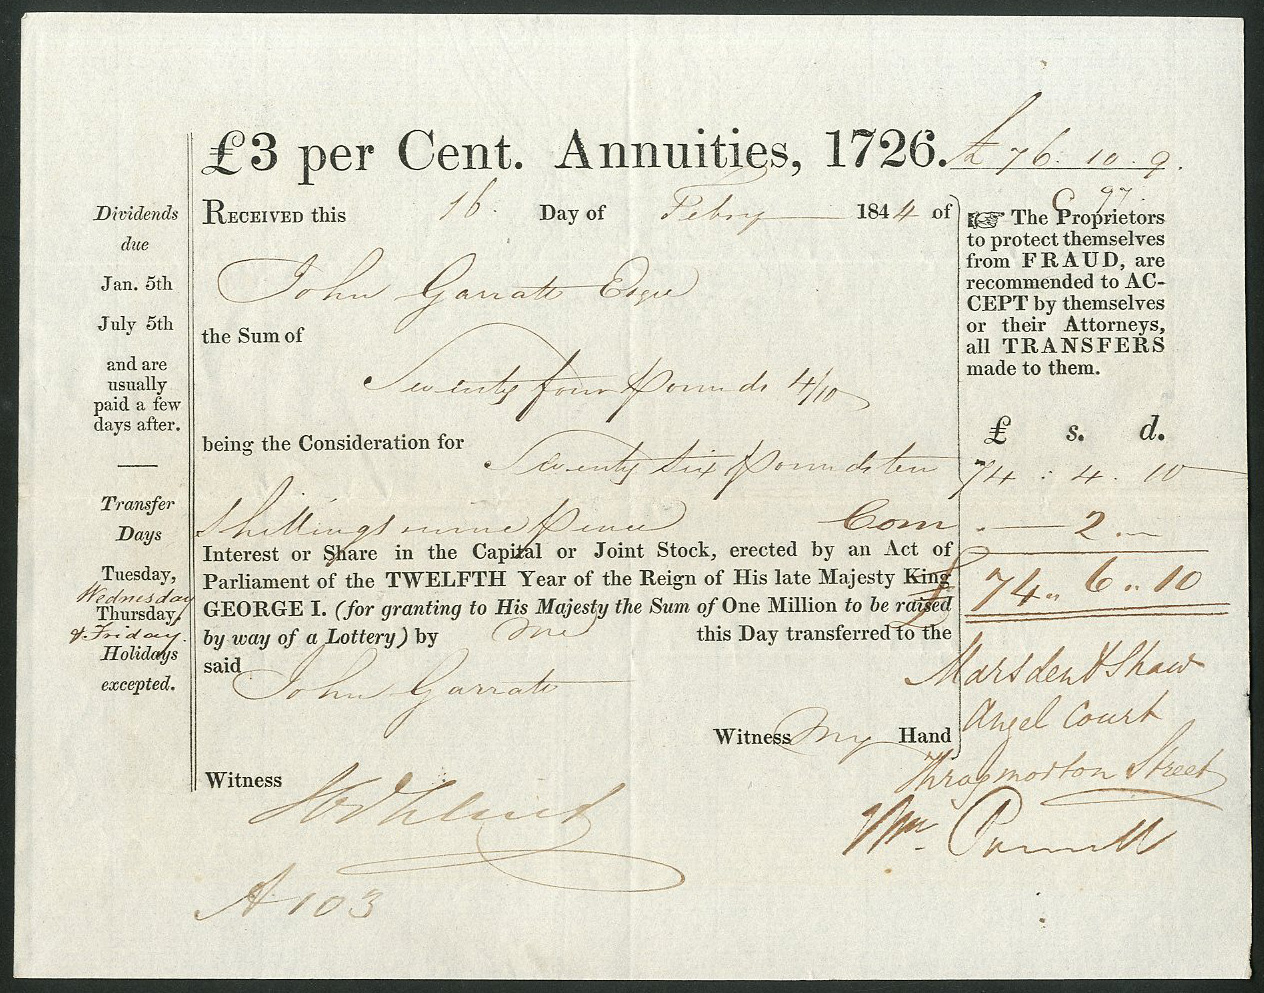 £3 per Cent. Annuities, 1726.
£76.10.9.
C 97
Dividends
due
Jan. 5th
July 5th
and are
usually
paid a few
days after.
Transfer
Days
Tuesday,
Wednesday
Thursday,
& Friday.
Holidays
excepted.
RECEIVED this 16 Day of Febry 1844 of
John Garratt Esqre
the Sum of
Seventy four pounds 4/10
being the Consideration for
Seventy six pounds ten
shillings nine pence
Interest or Share in the Capital or Joint Stock, erected by an Act of
Parliament of the TWELFTH Year of the Reign of His late Majesty King
GEORGE I. (for granting to His Majesty the Sum of One Million to be raised
by way of a Lottery) by me this Day transferred to the
said
John Garratt
Witness My Hand
Witness
A 103
☞ The Proprietors
to protect themselves
from FRAUD, are
recommended to AC-
CEPT by themselves
or their Attorneys,
all TRANSFERS
made to them.
£ s. d.
74 : 4 . 10
Com . — 2 ..
£ 74 .. 6 .. 10
Marsden & Shaw
Angel Court
Throgmorton Street
Wm.